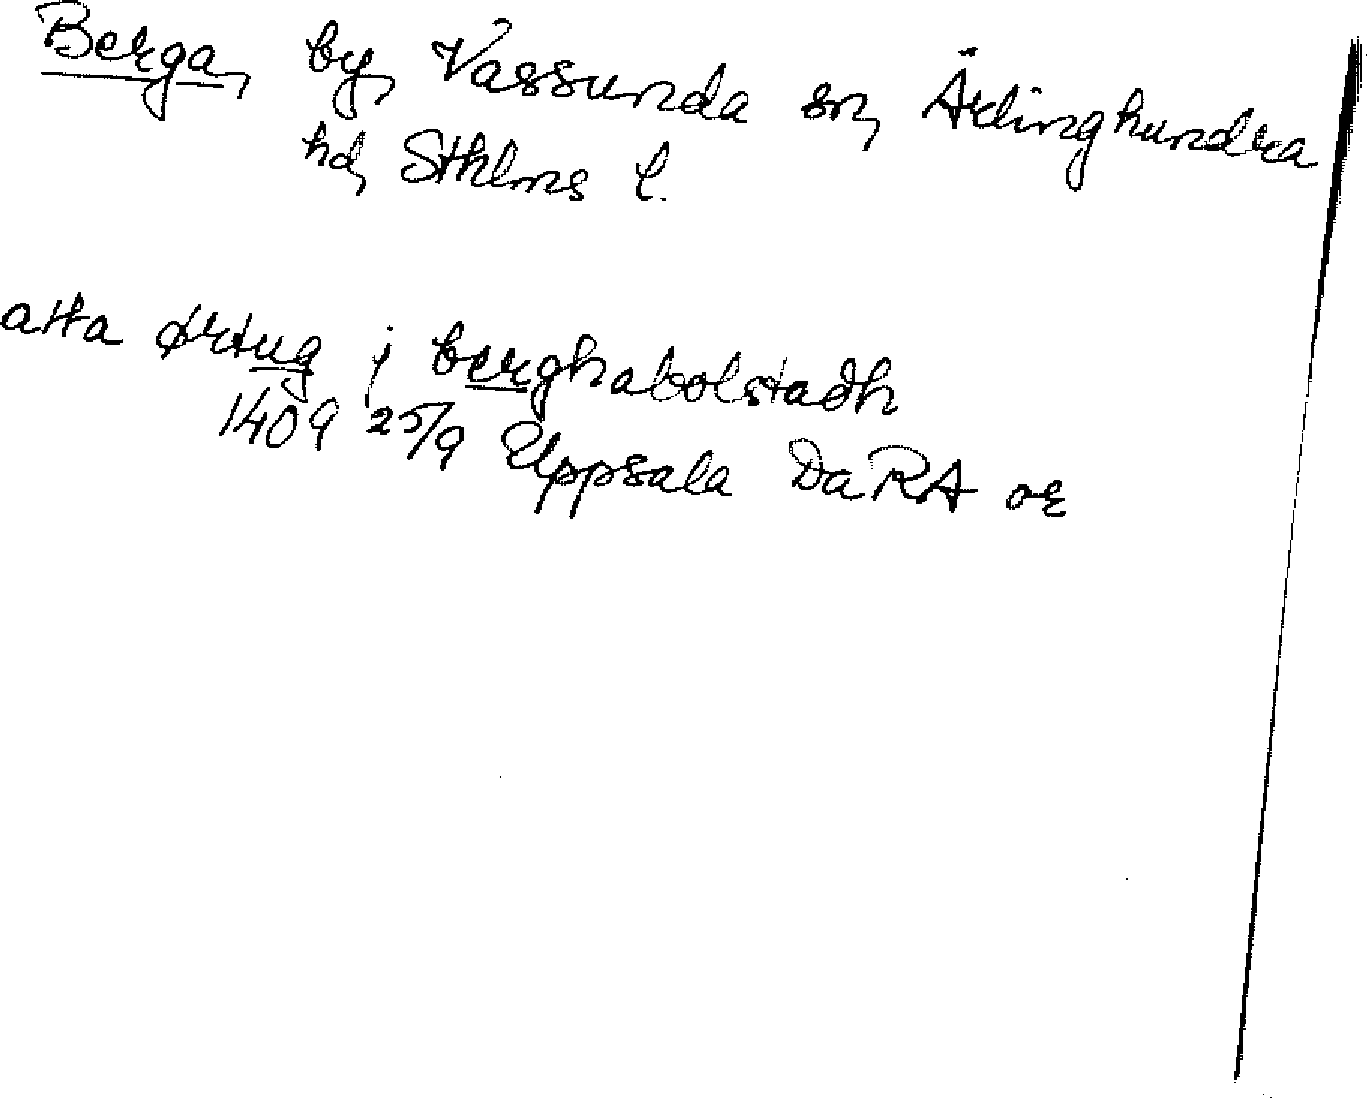 Berga, by, Vassunda sn, Ärlinghundra
hd, Sthlms l.
atta ørtug j berghabolstadh
1409 25/9 Uppsala DaRA or